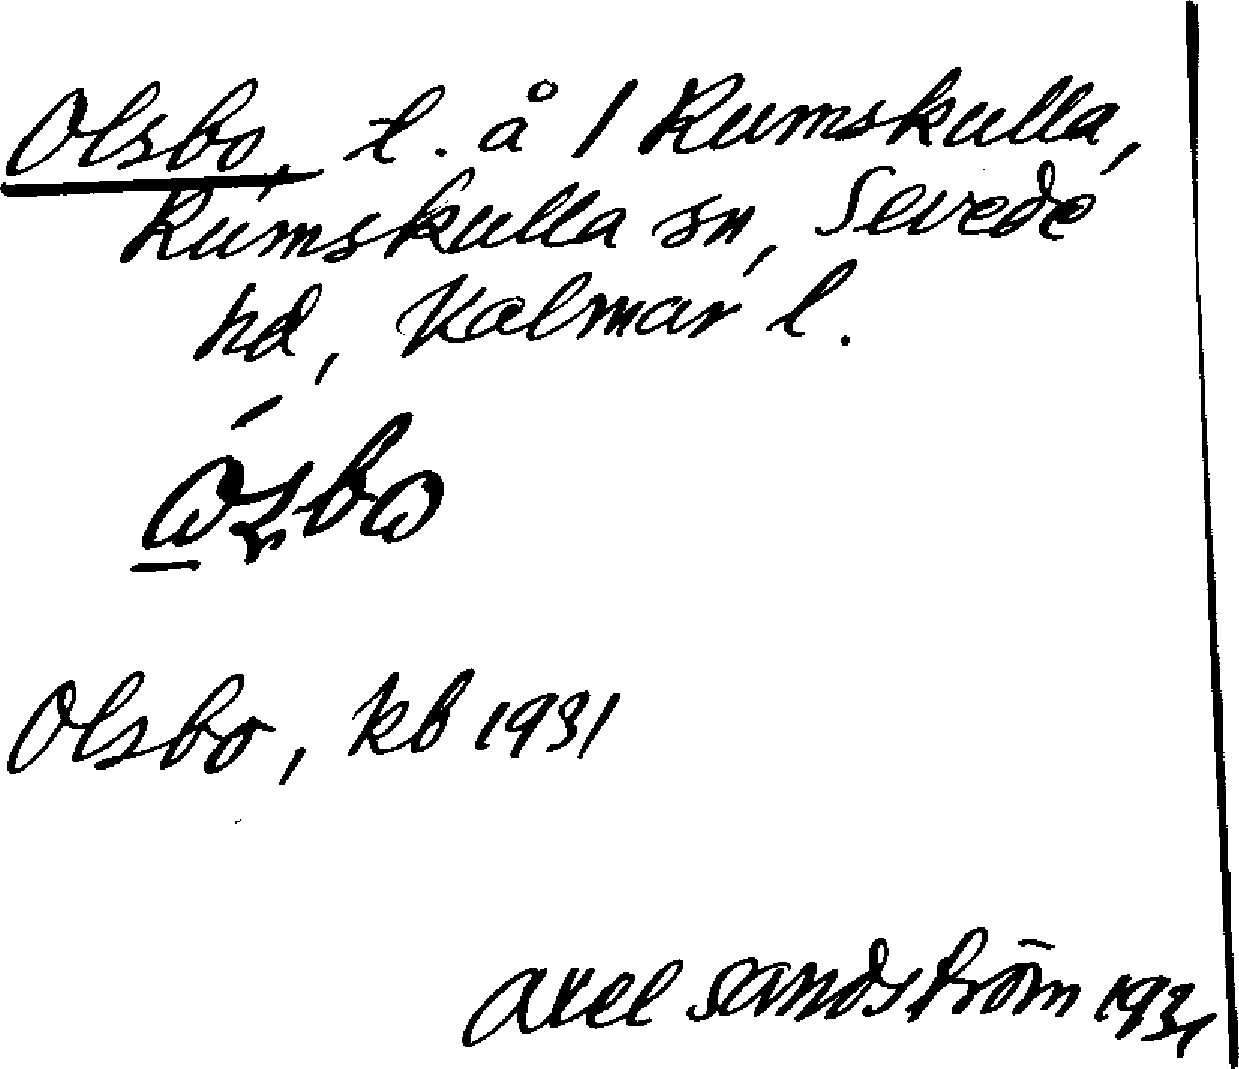 Olsbo, t. å 1 Rumskulla,
Rumskulla sn, Sevede
hd, Kalmar l.
Olsbo, kb 1931
Axel Sandström 1931